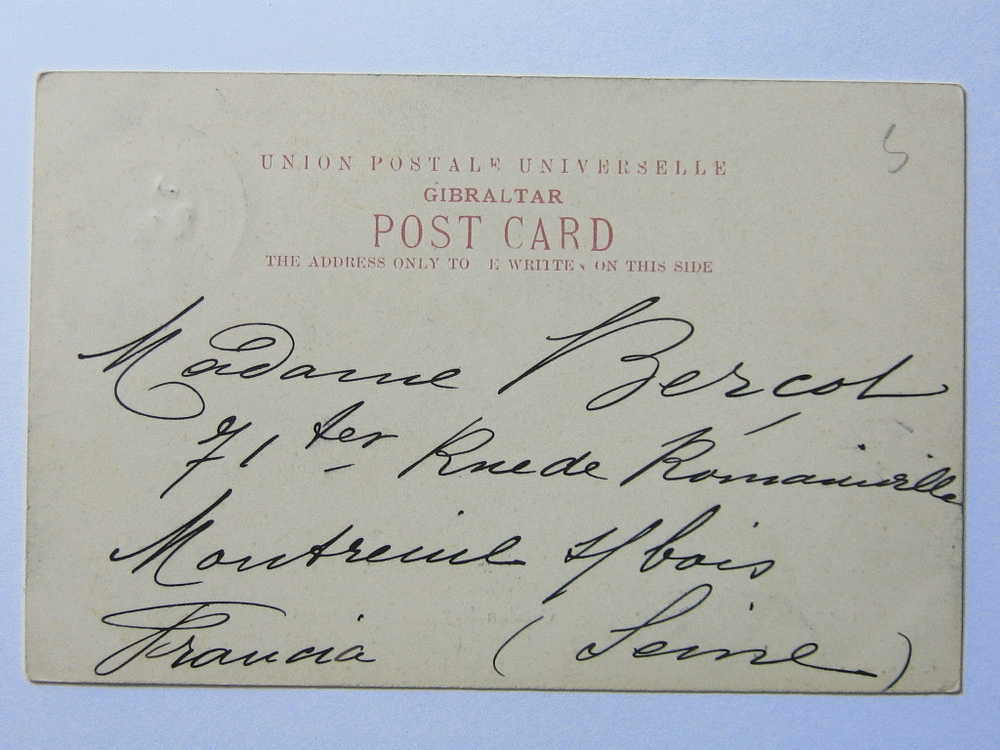 UNION POSTALE UNIVERSELLE
GIBRALTAR
POST CARD
THE ADDRESS ONLY TO E WRITTEN ON THIS SIDE
5
Madame Berçot
71 ter Rue de Romainville
Montreuil s/ bois
Francia (Seine)